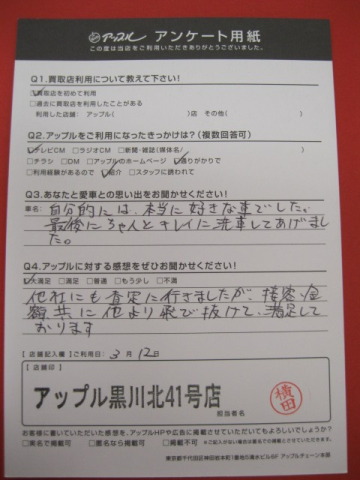 アップル アンケート用紙
この度は当店をご利用いただきありがとうございました。
Q1.買取店利用について教えて下さい!
☑買取店を初めて利用
□過去に買取店を利用したことがある
利用した店舗:アップル( )店 その他( )
Q2.アップルをご利用になったきっかけは?(複数回答可)
☑テレビCM □ラジオCM □新聞・雑誌(媒体名/ )
□チラシ □DM □アップルのホームページ ☑通りがかりで
□利用経験があるので ☑紹介 □スタッフに誘われて
Q3.あなたと愛車との思い出をお聞かせください!
車名:自分的には、本当に好きな車でした。
最後にちゃんとキレイに洗車してあげまし
た。
Q4.アップルに対する感想をぜひお聞かせください!
☑大満足 □満足 □普通 □もう少し □不満
他社にも査定に行きましたが、接客・金
額共に他より飛び抜けて、満足して
おります
【店舗記入欄】ご利用日: 3月 12日
【店舗印】
アップル黒川北41号店
担当者名
横田
お客様に書いていただいた感想を、アップルHPや広告に掲載させていただいてもよろしいでしょうか?
□実名で掲載可 □匿名なら掲載可 □掲載不可 ※ご記入がない場合は匿名での掲載とさせていただきます。
東京都千代田区神田板本町1番地5清水ビル6F アップルチェーン本部